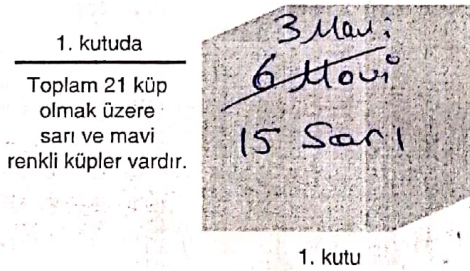 1. kutuda
Toplam 21 küp
olmak üzere
sarı ve mavi
renkli küpler vardır.
3 Mavi
6 Mavi
15 Sarı
1. kutu